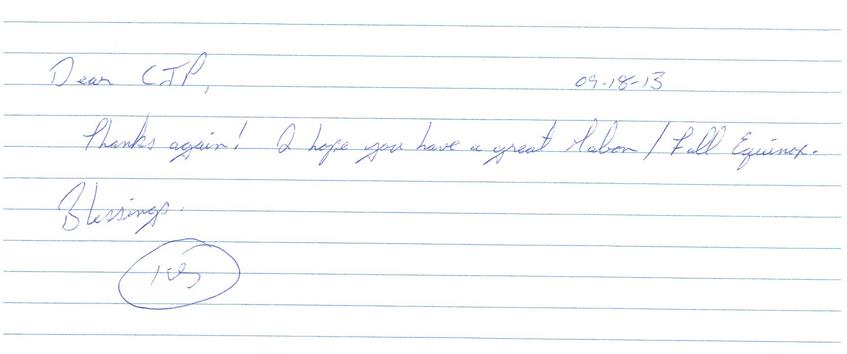 Dear CJP, 09-18-13
Thanks again! I hope you have a great Mabon / Fall Equinox.
Blessings.